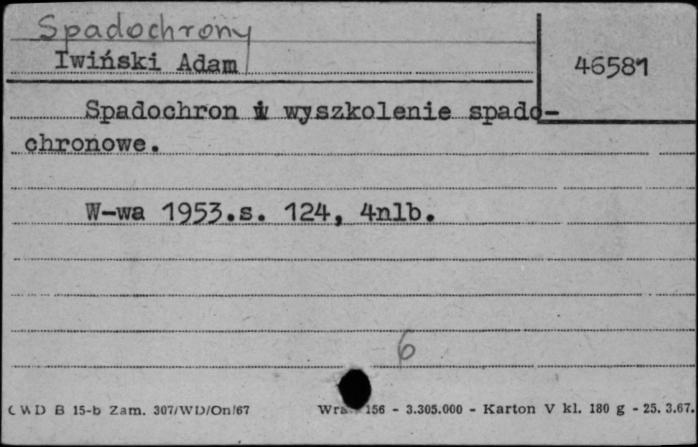 Spadochrony
Iwiński Adam
46581
Spadochron i wyszkolenie spado-
chronowe.
W-wa 1953.s. 124, 4nlb.
6
CWD B 15-b Zam. 307/WD/On/67
156 - 3.305.000 - Karton V kl. 180 g - 25. 3.67.